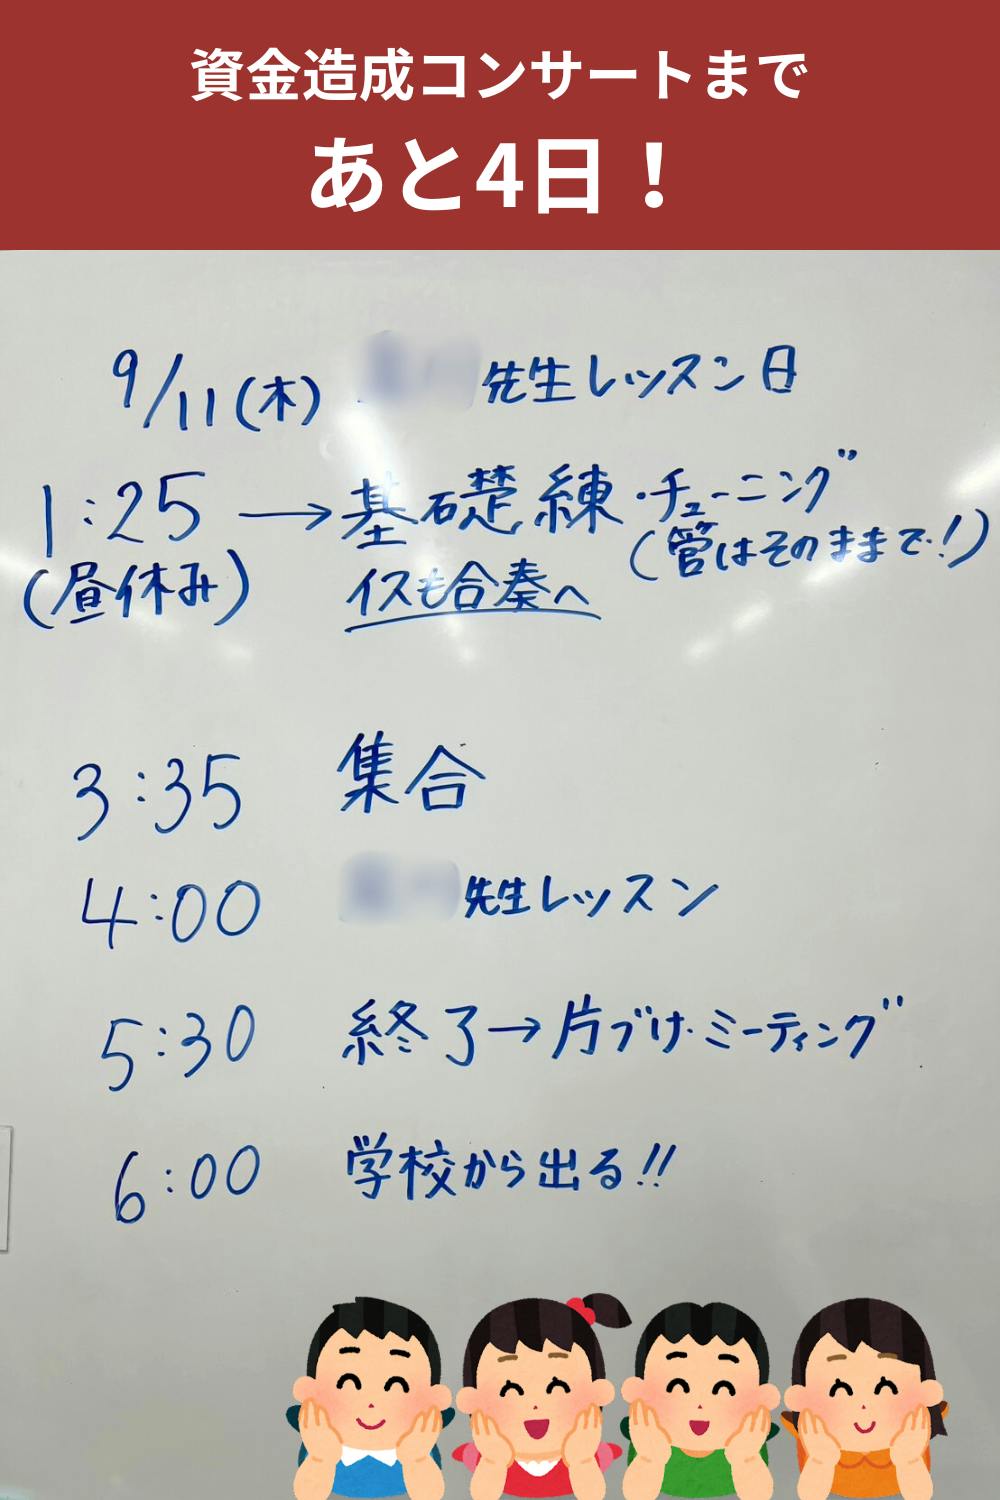 資金造成コンサートまで
あと4日！
9/11(木) 先生レッスン日
1:25 → 基礎練・チューニング
(昼休み) イスも合奏へ (管はそのままで!)
3:35 集合
4:00 先生レッスン
5:30 終了→片づけ・ミーティング
6:00 学校から出る!!